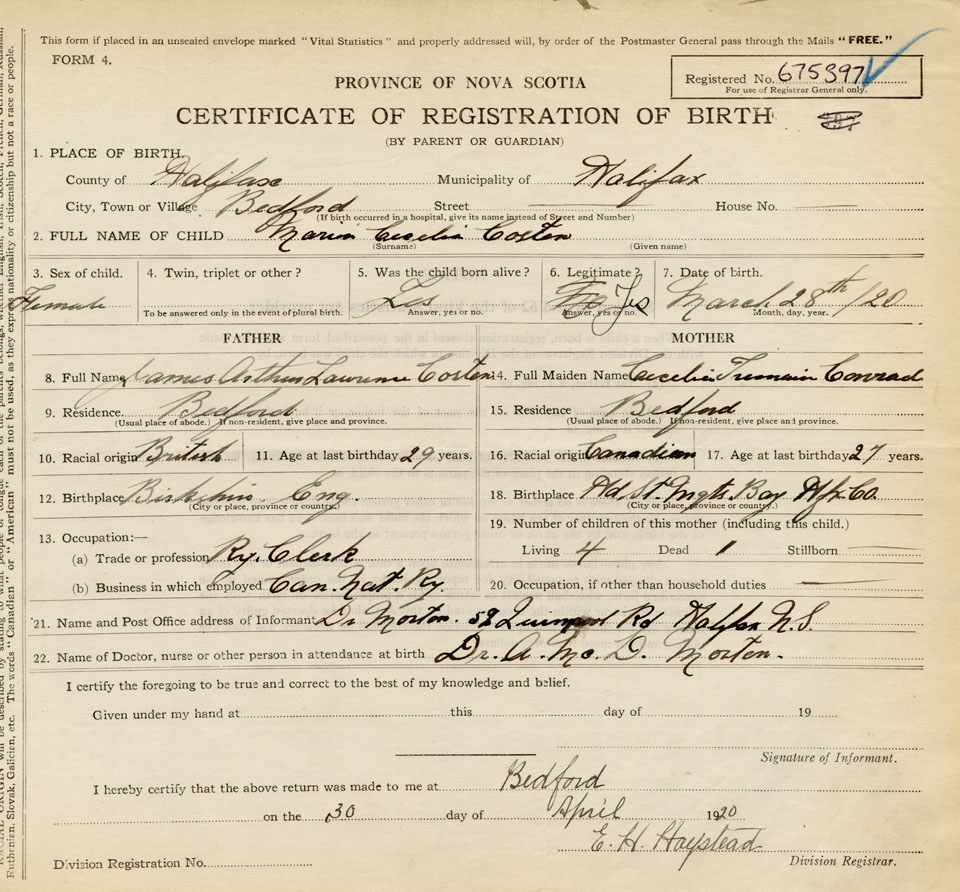 This form if placed in an unsealed envelope marked "Vital Statistics" and properly addressed will, by order of the Postmaster General pass through the Mails "FREE."
FORM 4.
Registered No. 675397
For use of Registrar General only.
PROVINCE OF NOVA SCOTIA
CERTIFICATE OF REGISTRATION OF BIRTH
(BY PARENT OR GUARDIAN)
1. PLACE OF BIRTH,
County of Halifax Municipality of Halifax
City, Town or Village Bedford Street House No.
(If birth occurred in a hospital, give its name instead of Street and Number)
2. FULL NAME OF CHILD Maria Cecelia Costen
(Surname) (Given name)
3. Sex of child. 4. Twin, triplet or other? 5. Was the child born alive? 6. Legitimate? 7. Date of birth.
Female Yes Yes March 28th /20
To be answered only in the event of plural birth. Answer, yes or no. Answer, yes or no. Month, day, year.
FATHER MOTHER
8. Full Name James Arthur Lawrence Costen 14. Full Maiden Name Cecelia Tremain Conrad
9. Residence. Bedford 15. Residence Bedford
(Usual place of abode.) If non-resident, give place and province. (Usual place of abode.) If non-resident, give place and province.
10. Racial origin British 11. Age at last birthday 29 years. 16. Racial origin Canadian 17. Age at last birthday 27 years.
12. Birthplace Eng. 18. Birthplace Hd St. Mgts Bay Hfx Co.
(City or place, province or country.) (City or place, province or country.)
19. Number of children of this mother (including this child.)
13. Occupation:—
(a) Trade or profession Ry. Clerk Living 4 Dead 1 Stillborn
(b) Business in which employed Can. Nat. Ry. 20. Occupation, if other than household duties
21. Name and Post Office address of Informant Dr Morton. Quinpool Rd Halifax N.S.
22. Name of Doctor, nurse or other person in attendance at birth Dr. A. Mc. D. Morton.
I certify the foregoing to be true and correct to the best of my knowledge and belief.
Given under my hand at this day of 19
Signature of Informant.
I hereby certify that the above return was made to me at Bedford
on the 30 day of April 1920
E. H. Haystead
Division Registration No. Division Registrar.
RACIAL ORIGIN will be described by stating to what people or tongue each of the parents belongs, whether English, Irish, Scotch, French, German, Russian,
Ruthenian, Slovak, Galician, etc. The words "Canadian" or "American" must not be used, as they express nationality or citizenship but not a race or people.